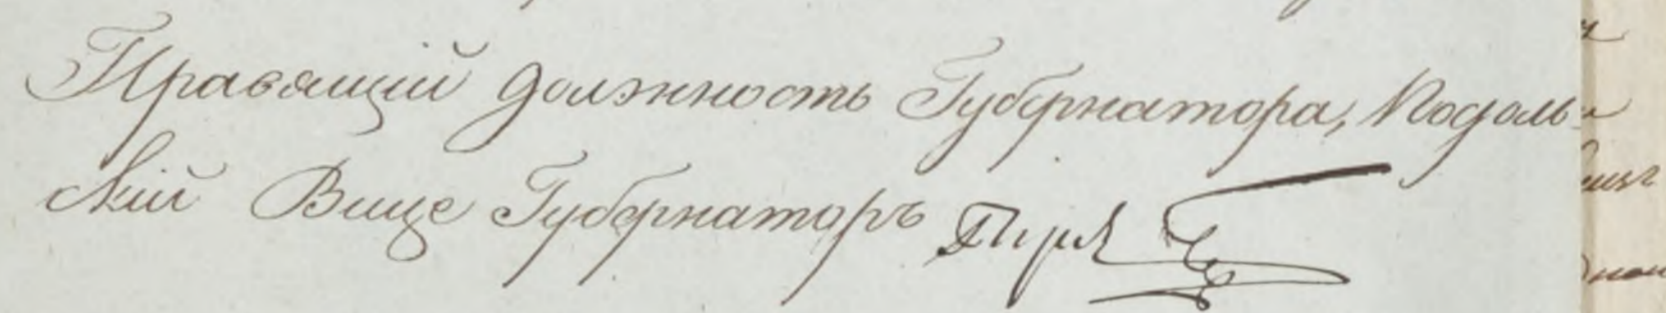 Правящій должность Губернатора, Подоль-
скій Вице Губернаторъ